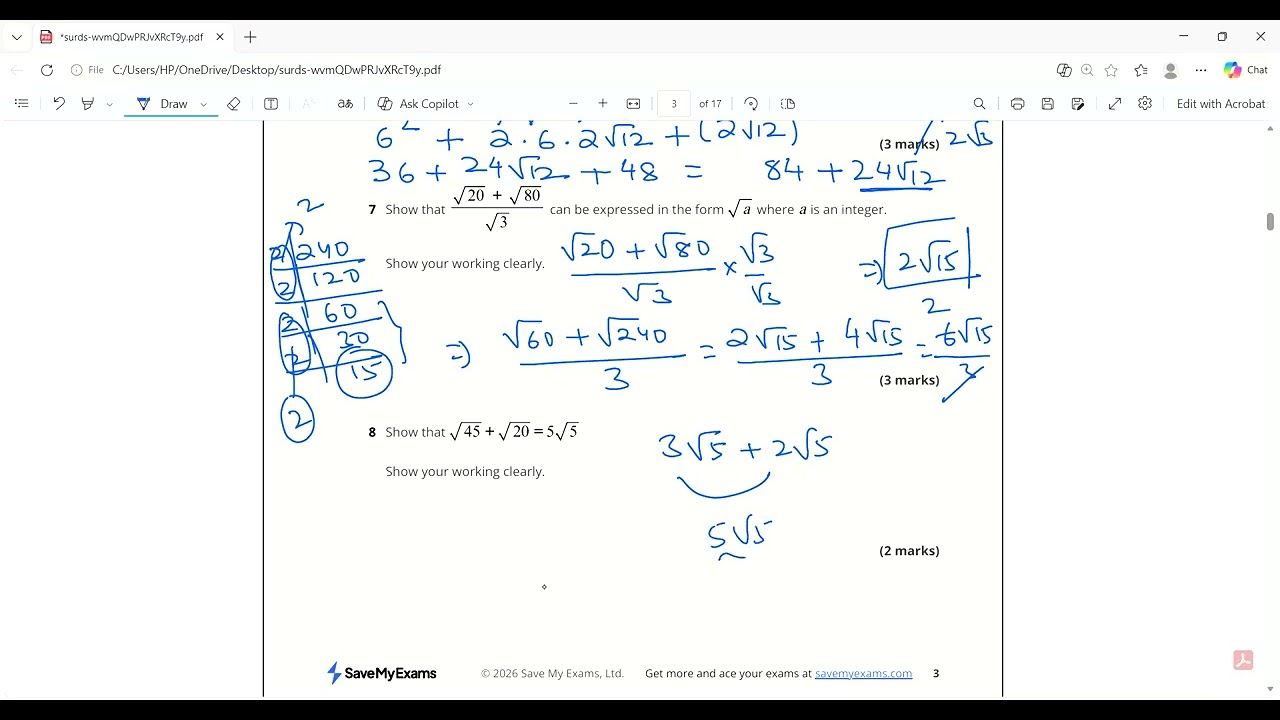 *surds-wvmQDwPRJvXRcT9y.pdf
File C:/Users/HP/OneDrive/Desktop/surds-wvmQDwPRJvXRcT9y.pdf Chat
Draw Ask Copilot 3 of 17 Edit with Acrobat
6² + 2·6·2√12 + (2√12)
(3 marks) 2√3
36 + 24√12 + 48 = 84 + 24√12
7 Show that (√20 + √80)/√3 can be expressed in the form √a where a is an integer.
Show your working clearly.
(√20 + √80)/√3 × √3/√3
=> 2√15
2
2 240
2 120
2 60
2 30
15
2
=> (√60 + √240)/3 = (2√15 + 4√15)/3 = 6√15/3
2
(3 marks)
8 Show that √45 + √20 = 5√5
3√5 + 2√5
Show your working clearly.
5√5
(2 marks)
SaveMyExams © 2026 Save My Exams, Ltd. Get more and ace your exams at savemyexams.com 3